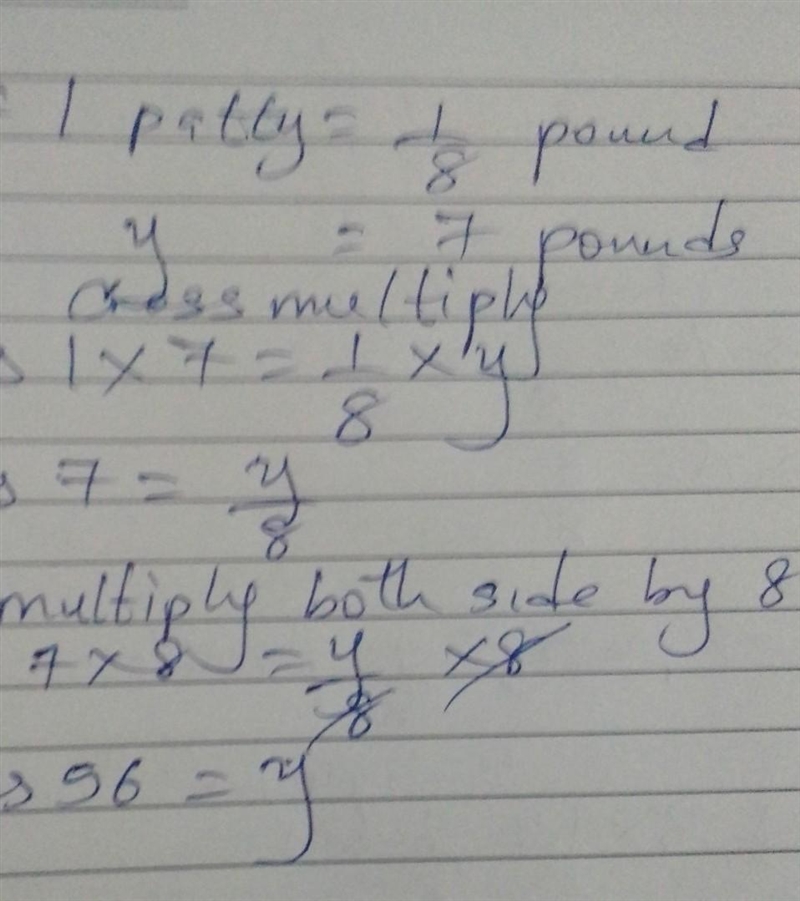 1 patty = 1/8 pound
y = 7 pounds
cross multiply
1 × 7 = 1/8 × y
7 = y/8
multiply both side by 8
7 × 8 = y/8 × 8
56 = y